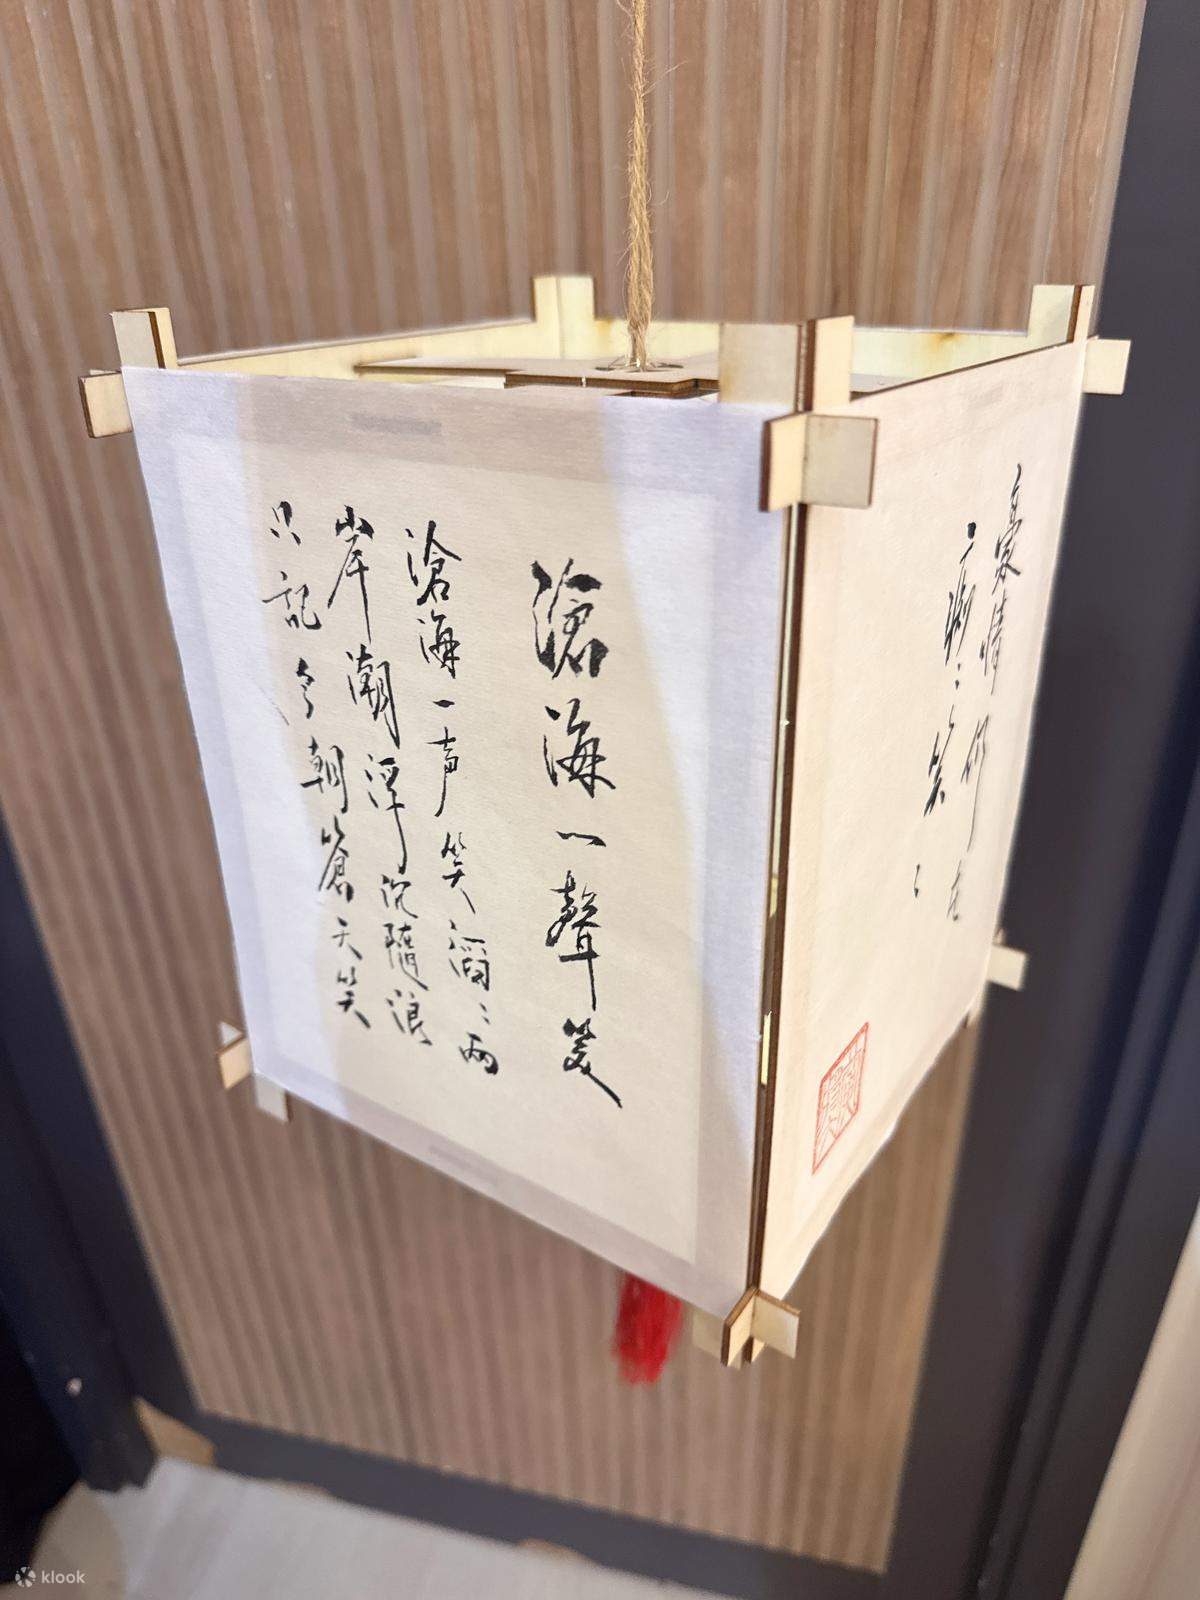 滄海一聲笑
滄海一声笑滔〻兩
岸潮浮沉隨浪
只記今朝蒼天笑
豪情仍在
癡〻笑〻
klook